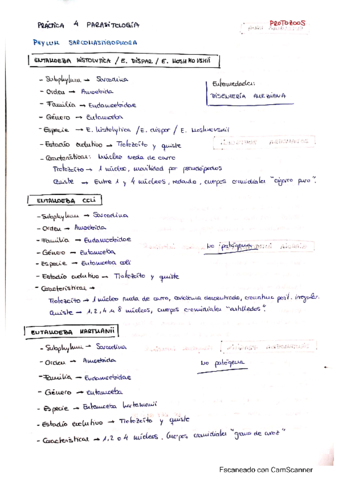 PRÁCTICA 4 PARASITOLOGÍA
PROTOZOOS
PHYLUM SARCOMASTIGOPHORA
ENTAMOEBA HISTOLYTICA / E. DISPAR / E. MOSHKOVSKII
- Subphylum → Sarcodina
- Orden → Amoebida
- Familia → Endamoebidae
- Género → Entamoeba
- Especie → E. histolytica / E. dispar / E. moshkovskii
- Estadío evolutivo → Trofozoíto y quiste
- Características: núcleo rueda de carro
Trofozoíto → 1 núcleo, movilidad por pseudópodos
Quiste → Entre 1 y 4 núcleos, redondo, cuerpos cromidiales "cigarro puro".
Enfermedades:
DISENTERÍA AMEBIANA
ENTAMOEBA COLI
- Subphylum → Sarcodina
- Orden → Amoebida
- Familia → Endamoebidae
- Género → Entamoeba
- Especie → Entamoeba coli
- Estadío evolutivo → Trofozoíto y quiste
- Características →
Trofozoíto → 1 núcleo rueda de carro, cariosoma excéntrico, cromatina irregular.
Quiste → 1, 2, 4 u 8 núcleos, cuerpos cromidiales "astillados".
No patógena
ENTAMOEBA HARTMANII
- Subphylum → Sarcodina
- Orden → Amoebida
- Familia → Endamoebidae
- Género → Entamoeba
- Especie → Entamoeba hartmanii
- Estadío evolutivo → Trofozoíto y quiste
- Características → 1, 2 o 4 núcleos, Cuerpos cromidiales "grano de arroz"
No patógena
Escaneado con CamScanner